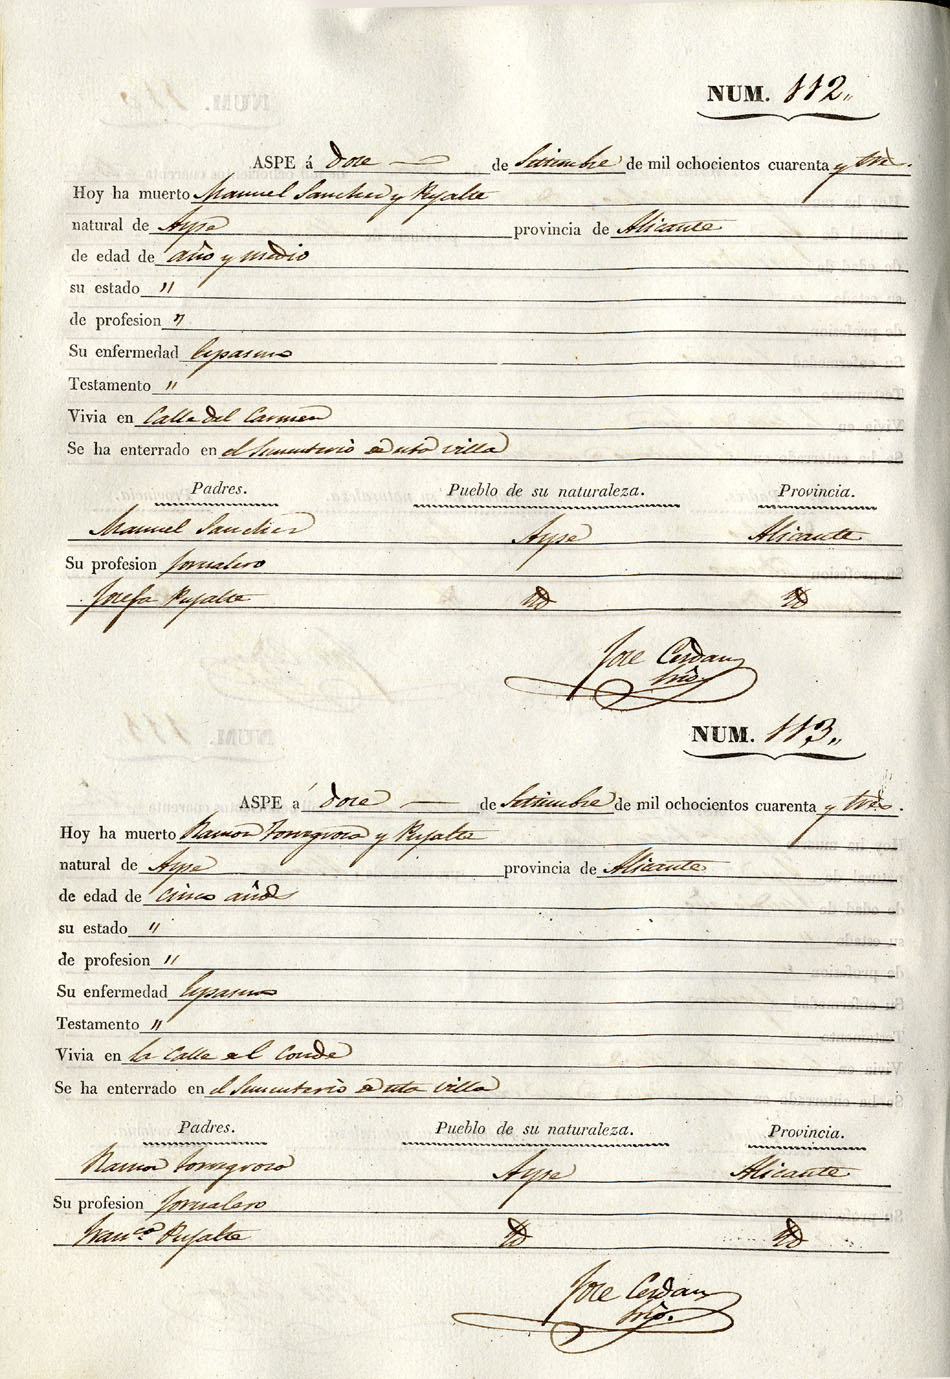 NUM. 112,,
ASPE á doce — de Setiembre de mil ochocientos cuarenta y tres.
Hoy ha muerto Manuel Sanchez y Pujalte
natural de Aspe provincia de Alicante
de edad de año y medio
su estado "
de profesion "
Su enfermedad Espasmo
Testamento "
Vivia en Calle del Carmen
Se ha enterrado en el Sementerio de esta villa
Padres. Pueblo de su naturaleza. Provincia.
Manuel Sanchez Aspe Alicante
Su profesion Jornalero
Josefa Pujalte Id Id
Jose Cerdan
NUM. 113,,
ASPE á doce — de Setiembre de mil ochocientos cuarenta y tres.
Hoy ha muerto Ramon Torregrosa y Pujalte
natural de Aspe provincia de Alicante
de edad de cinco años
su estado "
de profesion "
Su enfermedad Espasmo
Testamento "
Vivia en la Calle del Conde
Se ha enterrado en el Sementerio de esta villa
Padres. Pueblo de su naturaleza. Provincia.
Ramon Torregrosa Aspe Alicante
Su profesion Jornalero
Franca Pujalte Id Id
Jose Cerdan